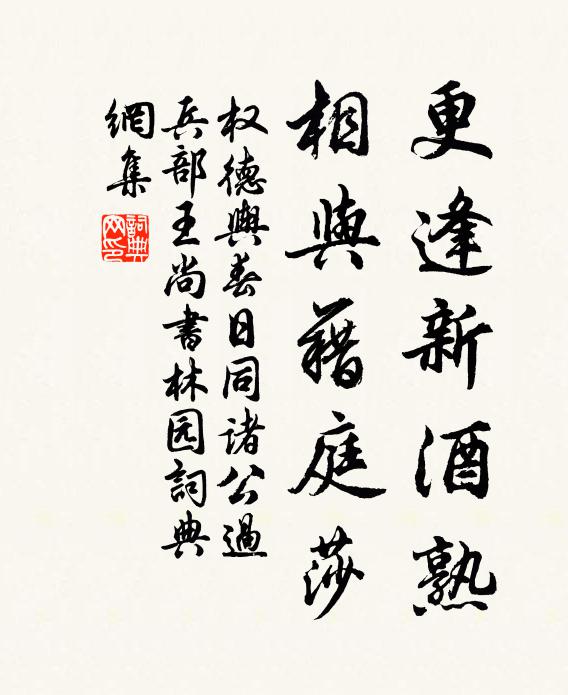 更逢新酒熟
相與藉庭莎
权德輿春日同諸公過
兵部王尚書林园詞典
網集
詞典網印